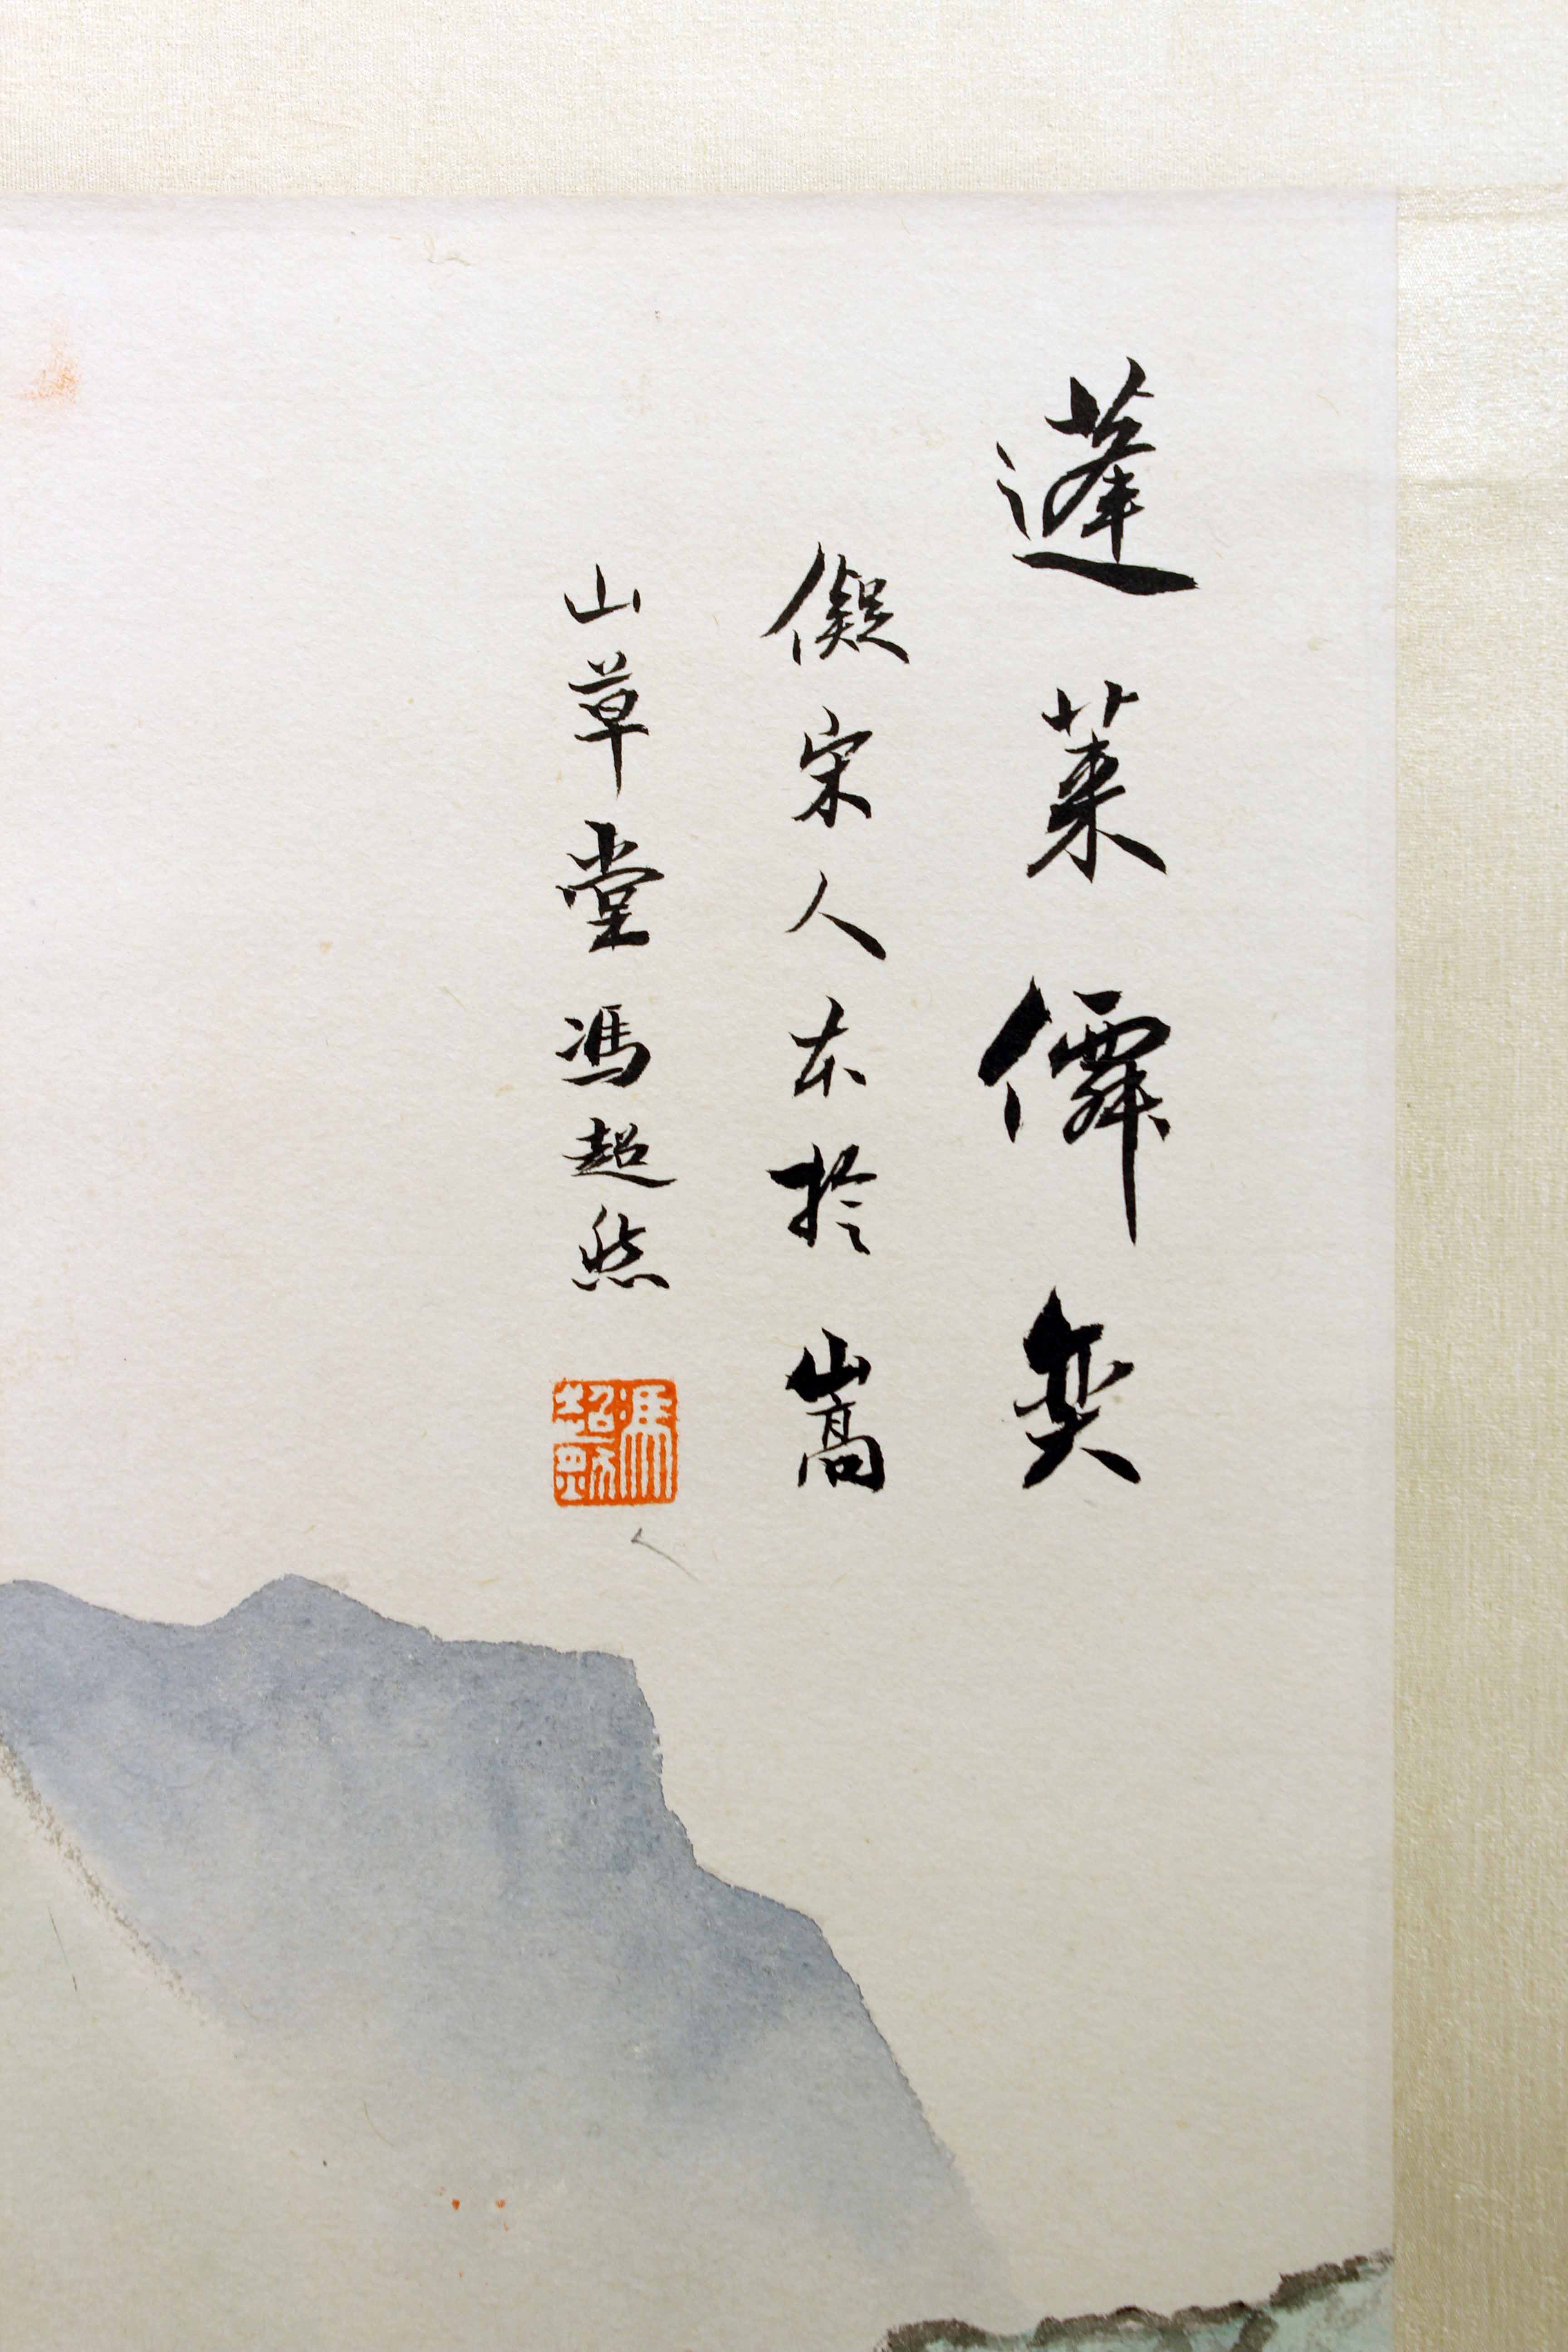 蓬莱僊奕
儗宋人本於嵩
山草堂馮超然
馮超然